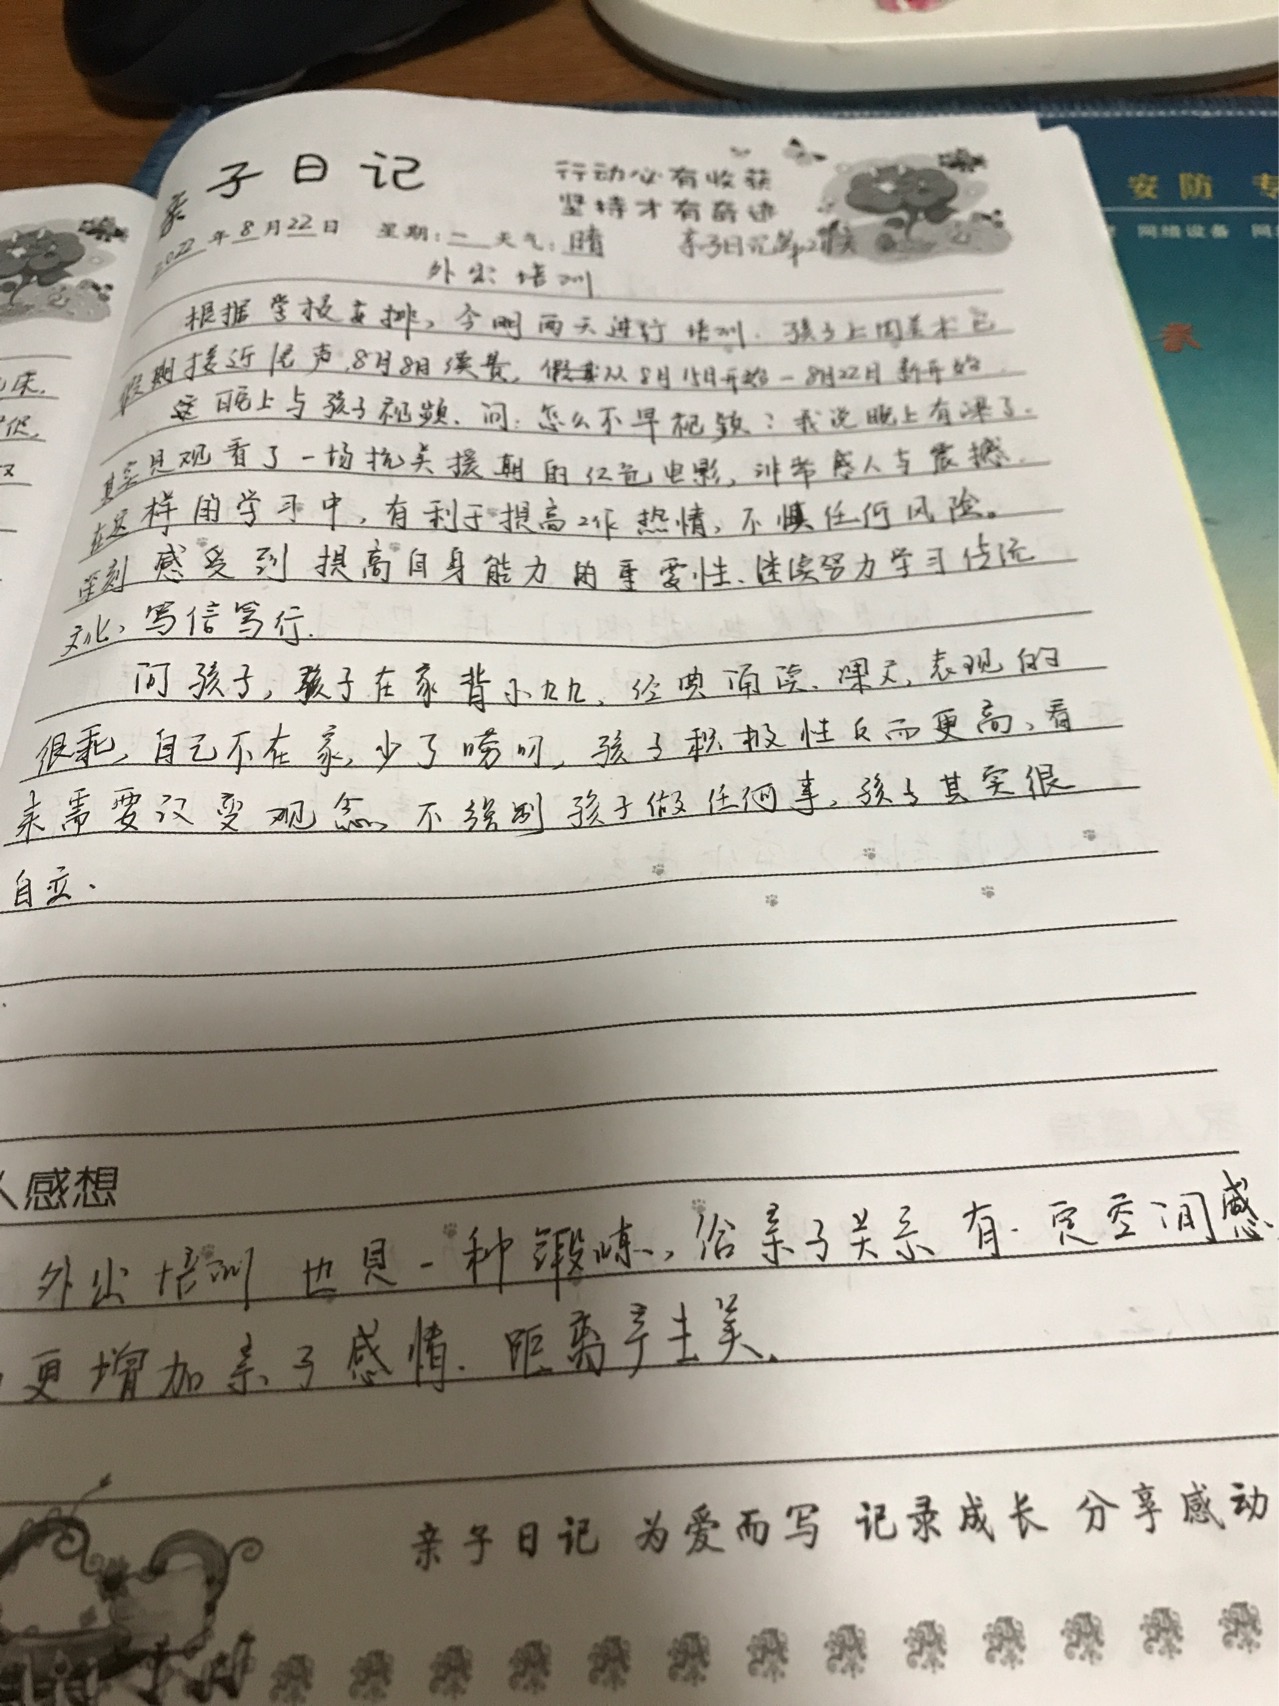 亲子日记
行动必有收获
坚持才有奇迹
2022年8月22日 星期:一 天气:晴 亲子日记第 天
外出培训
根据学校安排,今明两天进行培训.孩子上周美术已
假期接近尾声,8月8日续费,假 从8月15日开始-8月22日新开始.
晚上与孩子视频、问:怎么不早视频?我说晚上有课了.
其实是观看了一场抗美援朝的红色电影,非常感人与震撼.
在这样的学习中,有利于提高工作热情,不惧任何风险。
深刻感受到提高自身能力的重要性、继续努力学习传统
文化,笃信笃行.
问孩子,孩子在家背小九九、经典诵读、课文,表现的
很乖,自己不在家,少了唠叨,孩子积极性反而更高,看
来需要改变观念,不强制孩子做任何事,孩子其实很
自立.
人感想
外出培训也是一种锻炼,给亲子关系有一定空间感,
更增加亲子感情.距离产生美.
亲子日记 为爱而写 记录成长 分享感动
安防 专
网络设备 网
床.